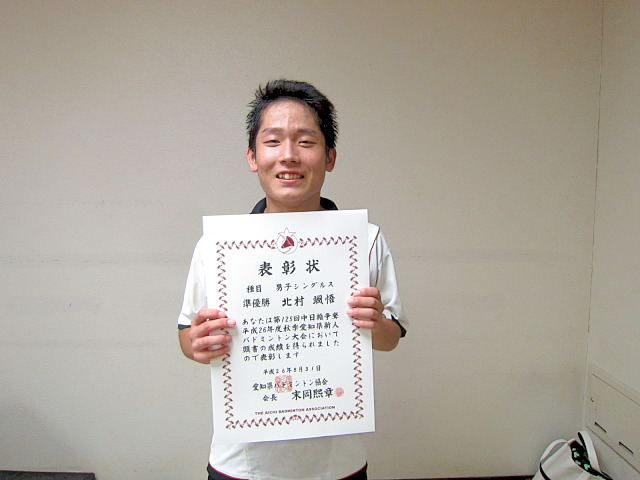 表彰状
種目 男子シングルス
準優勝 北村 颯悟
あなたは第125回中日指争奪
平成26年度秋季愛知県新人
バドミントン大会において
頭書の成績を得られました
ので表彰します
平成26年8月31日
愛知県バドミントン協会
会長 末岡熙章
THE AICHI BADMINTON ASSOCIATION